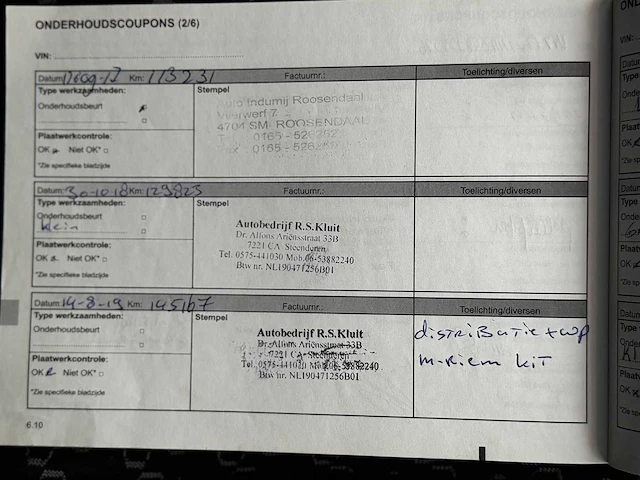 ONDERHOUDSCOUPONS (2/6)
VIN:
Datum: Km: 113231 Factuurnr.: Toelichting/diversen
Type werkzaamheden: Stempel
Onderhoudsbeurt
Auto Indumij Roosendaal
Vlierwerf 7
4704 SM ROOSENDAAL
0165 - 
0165 - 
Plaatwerkcontrole:
OK Niet OK*
*Zie specifieke bladzijde
Datum: 30-10-18 Km: 129823 Factuurnr.: Toelichting/diversen
Type werkzaamheden: Stempel
Onderhoudsbeurt
klein
Autobedrijf R.S.Kluit
Dr. Alfons Ariënsstraat 33B
7221 CA Steenderen
Tel. 0575-441030 Mob.06-53882240
Btw nr. NL190471256B01
Plaatwerkcontrole:
OK Niet OK*
*Zie specifieke bladzijde
Datum: 14-8-19 Km: 145167 Factuurnr.: Toelichting/diversen
Type werkzaamheden: Stempel
Onderhoudsbeurt
Autobedrijf R.S.Kluit
Dr. Alfons Ariënsstraat 33B
7221 CA Steenderen
Tel. 0575-441030 Mob.06-53882240
Btw nr. NL190471256B01
DISTRIBUTIE + WP
M-RIEM KIT
Plaatwerkcontrole:
OK Niet OK*
*Zie specifieke bladzijde
6.10